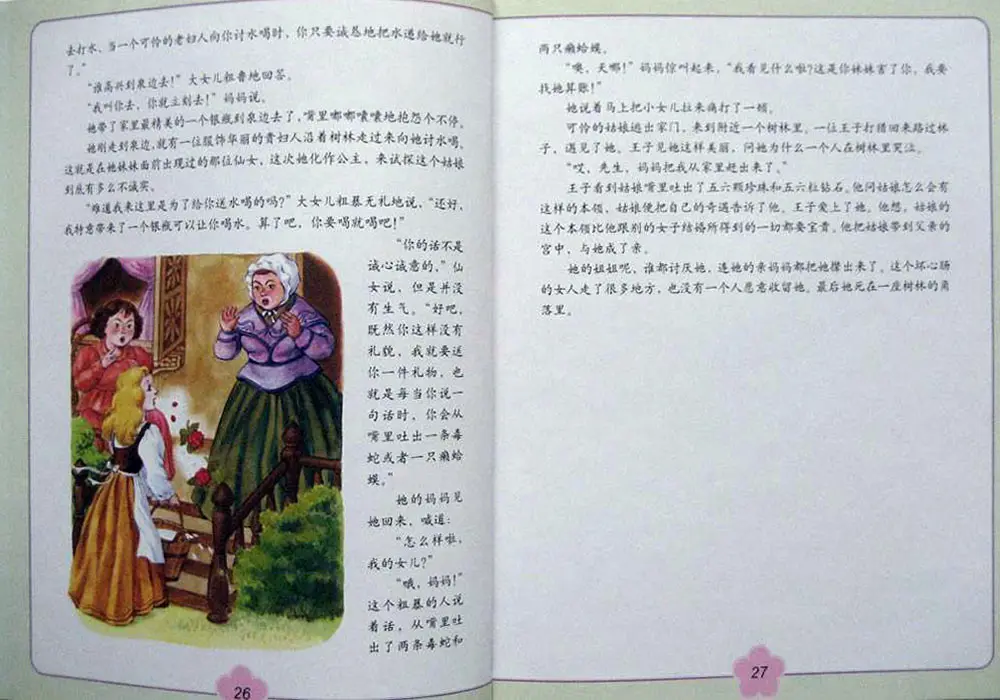 去打水、当一个可怜的老妇人向你讨水喝时，你只要诚恳地把水递给她就行
了。”
“谁高兴到泉边去！”大女儿粗鲁地回答。
“我叫你去，你就立刻去！”妈妈说。
她带了家里最精美的一个银瓶到泉边去了，嘴里嘟嘟囔囔地抱怨个不停。
她刚走到泉边，就有一位服饰华丽的贵妇人沿着树林走过来向她讨水喝。
这就是在她妹妹面前出现过的那位仙女，这次她化作公主，来试探这个姑娘
到底有多么不诚实。
“难道我来这里是为了给你送水喝的吗？”大女儿粗暴无礼地说，“还好，
我特意带来了一个银瓶可以让你喝水。算了吧，你要喝就喝吧！”
“你的话不是
诚心诚意的，”仙
女说，但是并没
有生气。“好吧，
既然你这样没有
礼貌，我就要送
你一件礼物，也
就是每当你说一
句话时，你会从
嘴里吐出一条毒
蛇或者一只癞蛤
蟆。”
她的妈妈见
她回来，喊道：
“怎么样啦，
我的女儿？”
“哦，妈妈！”
这个粗暴的人说
着话，从嘴里吐
出了两条毒蛇和
26
两只癞蛤蟆。
“噢，天哪！”妈妈惊叫起来，“我看见什么啦？这是你妹妹害了你，我要
找她算账！”
她说着马上把小女儿拉来痛打了一顿。
可怜的姑娘逃出家门，来到附近一个树林里。一位王子打猎回来路过林
子，遇见了她。王子见她这样美丽，问她为什么一个人在树林里哭泣。
“哎，先生，妈妈把我从家里赶出来了。”
王子看到姑娘嘴里吐出了五六颗珍珠和五六粒钻石。他问姑娘怎么会有
这样的本领，姑娘便把自己的奇遇告诉了他。王子爱上了她。他想，姑娘的
这个本领比他跟别的女子结婚所得到的一切都要宝贵。他把姑娘带到父亲的
宫中，与她成了亲。
她的姐姐呢，谁都讨厌她，连她的亲妈妈都把她撵出来了。这个坏心肠
的女人走了很多地方，也没有一个人愿意收留她。最后她死在一座树林的角
落里。
27